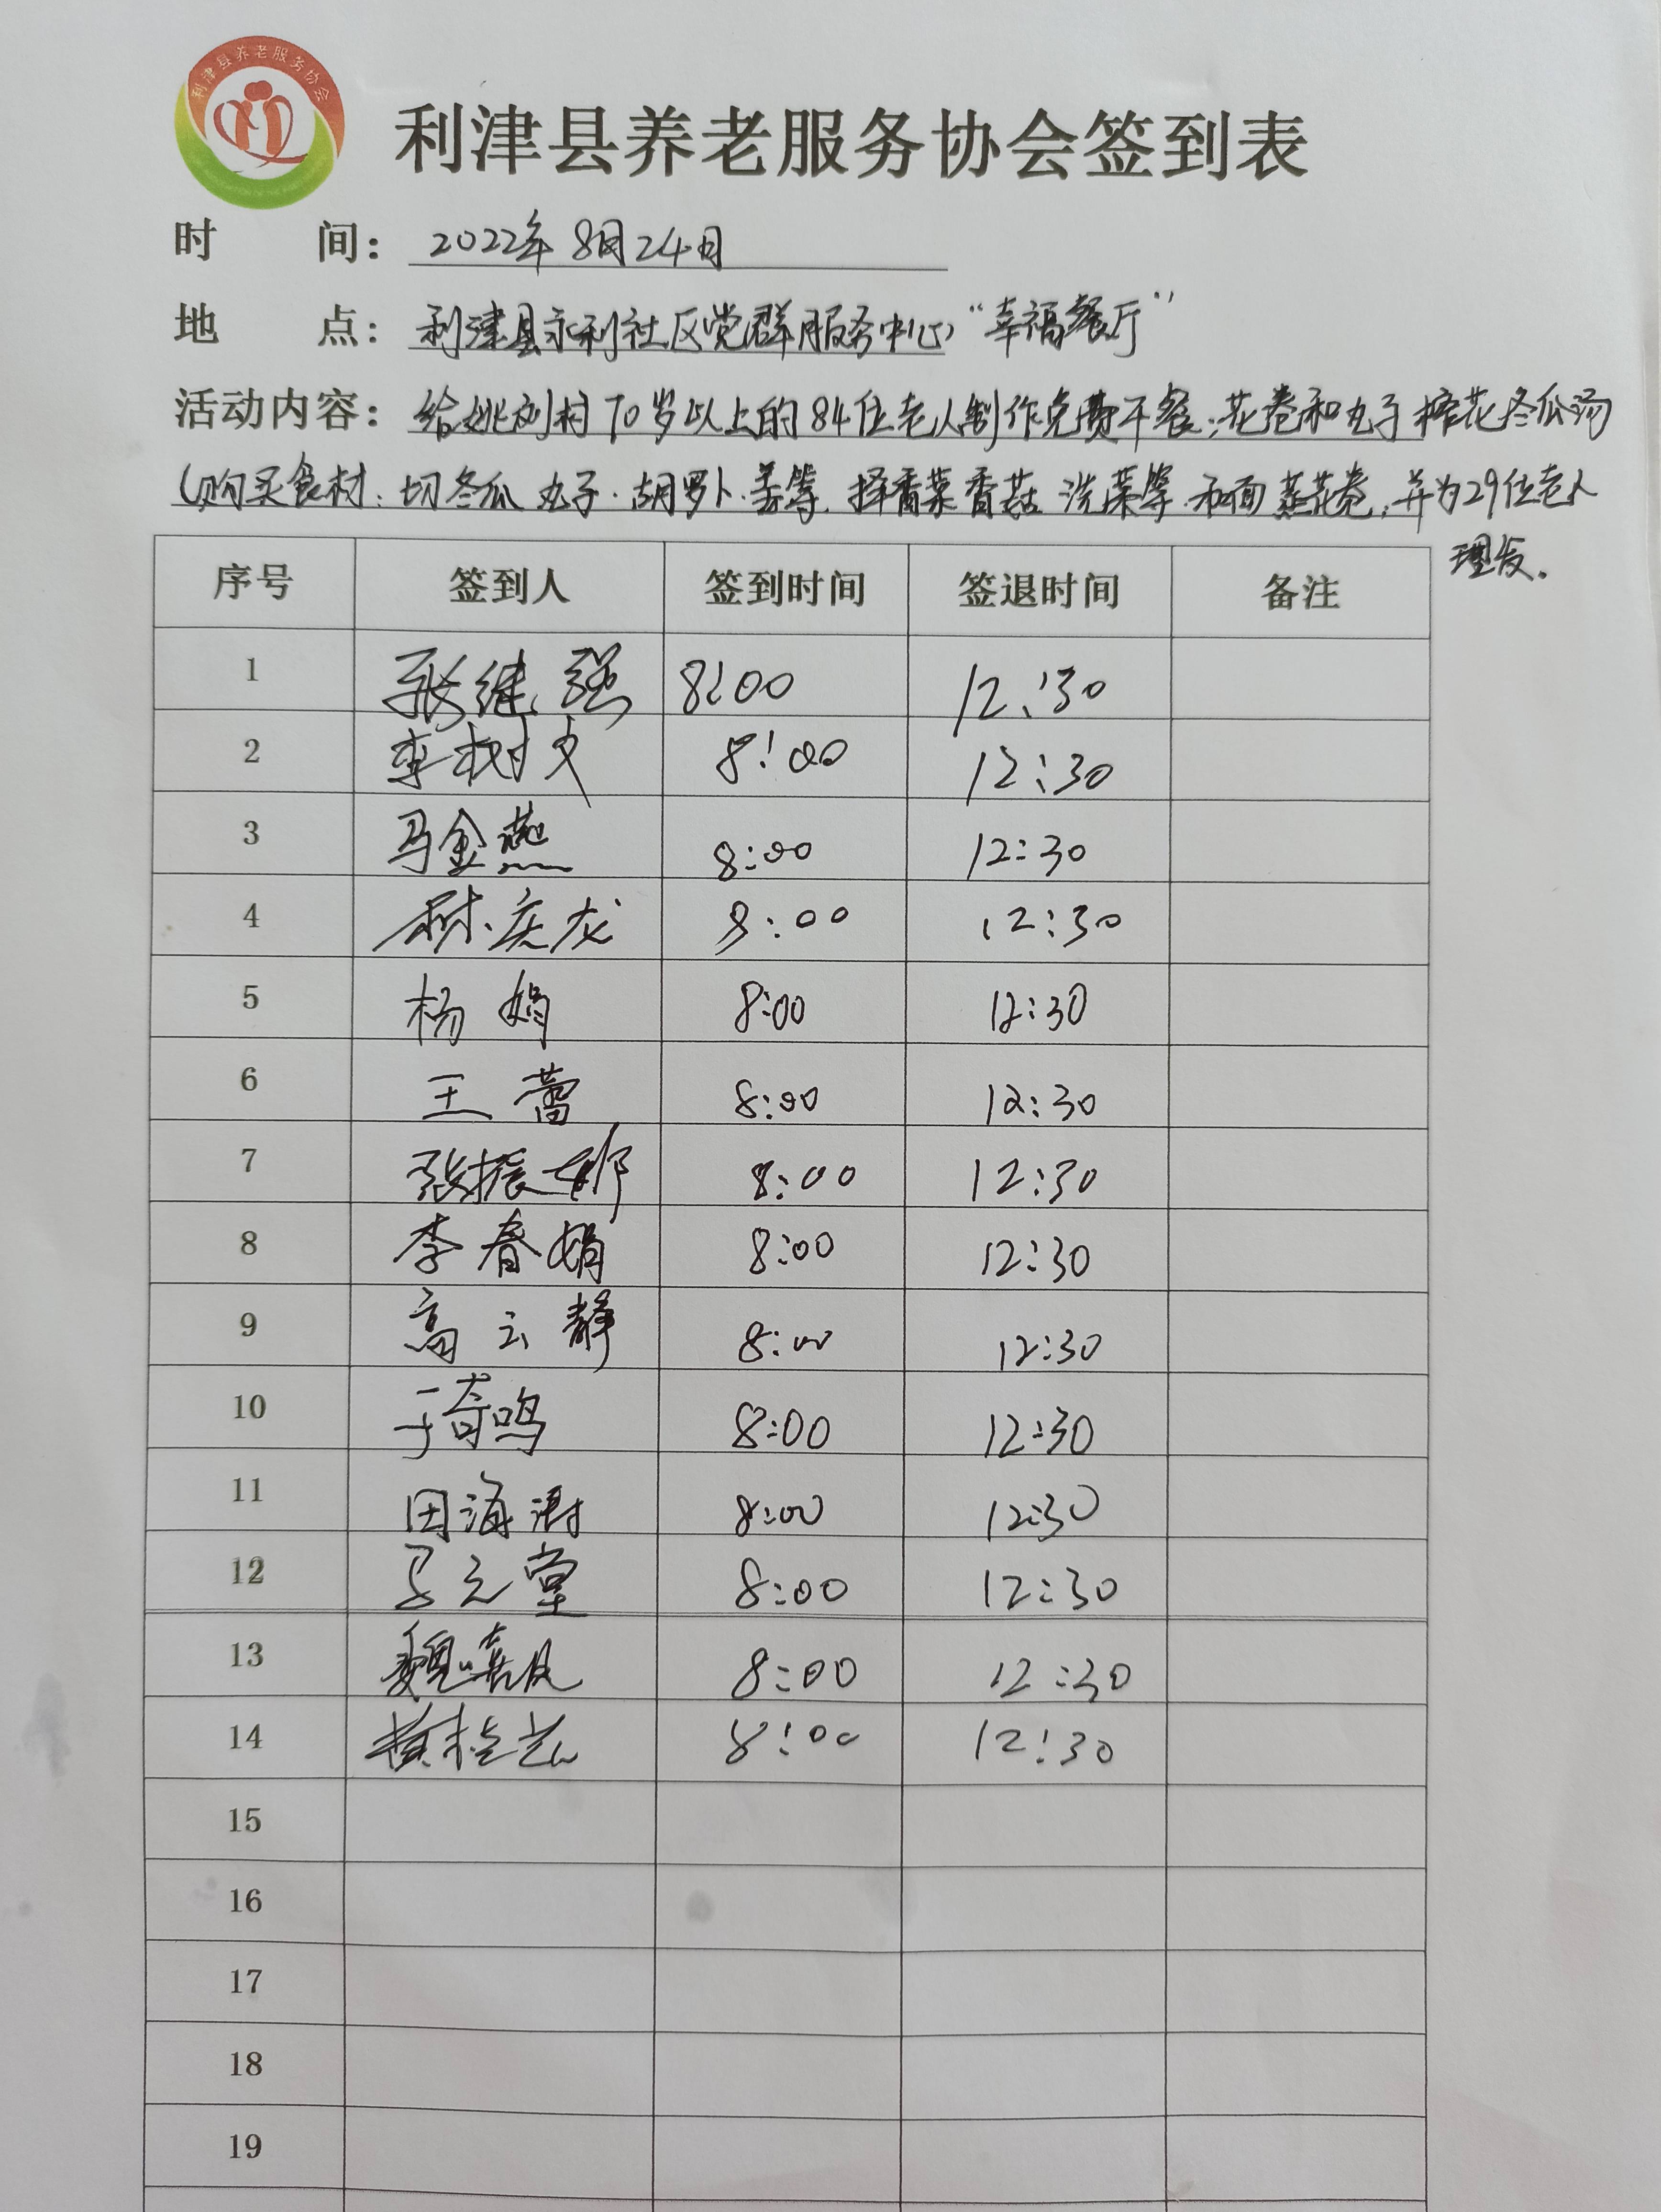 利津县养老服务协会
利津县养老服务协会签到表
时 间: 2022年8月24日
地 点: 利津县永利社区党群服务中心"幸福餐厅"
活动内容: 给姚刘村70岁以上的84位老人制作免费午餐:花卷和丸子榨花冬瓜汤
(购买食材:切冬瓜 丸子·胡萝卜·姜等.择香菜香菇 洗菜等.和面蒸花卷,并为29位老人
理发.
序号 签到人 签到时间 签退时间 备注
1 张继强 8:00 12:30
2 李树文 8:00 12:30
3 马金燕 8:00 12:30
4 林庆龙 8:00 12:30
5 杨娟 8:00 12:30
6 王蕾 8:00 12:30
7 张振娜 8:00 12:30
8 李春娟 8:00 12:30
9 高云静 8:00 12:30
10 于奇鸣 8:00 12:30
11 田海澍 8:00 12:30
12 马立堂 8:00 12:30
13 魏喜凤 8:00 12:30
14 8:00 12:30
15
16
17
18
19